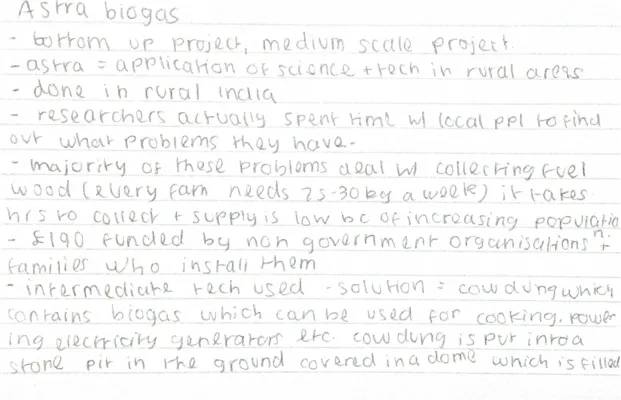 Astra biogas
- bottom up project, medium scale project
- astra = application of science + tech in rural areas
- done in rural india
- researchers actually spent time w/ local ppl to find
out what problems they have.
- majority of these problems deal w/ collecting fuel
wood (every fam needs 25-30kg a week) it takes
hrs to collect + supply is low bc of increasing population.
- £190 funded by non government organisations +
families who install them
- intermediate tech used - solution = cow dung which
contains biogas which can be used for cooking, power
ing electricity generators etc. cow dung is put into a
stone pit in the ground covered in a dome which is filled